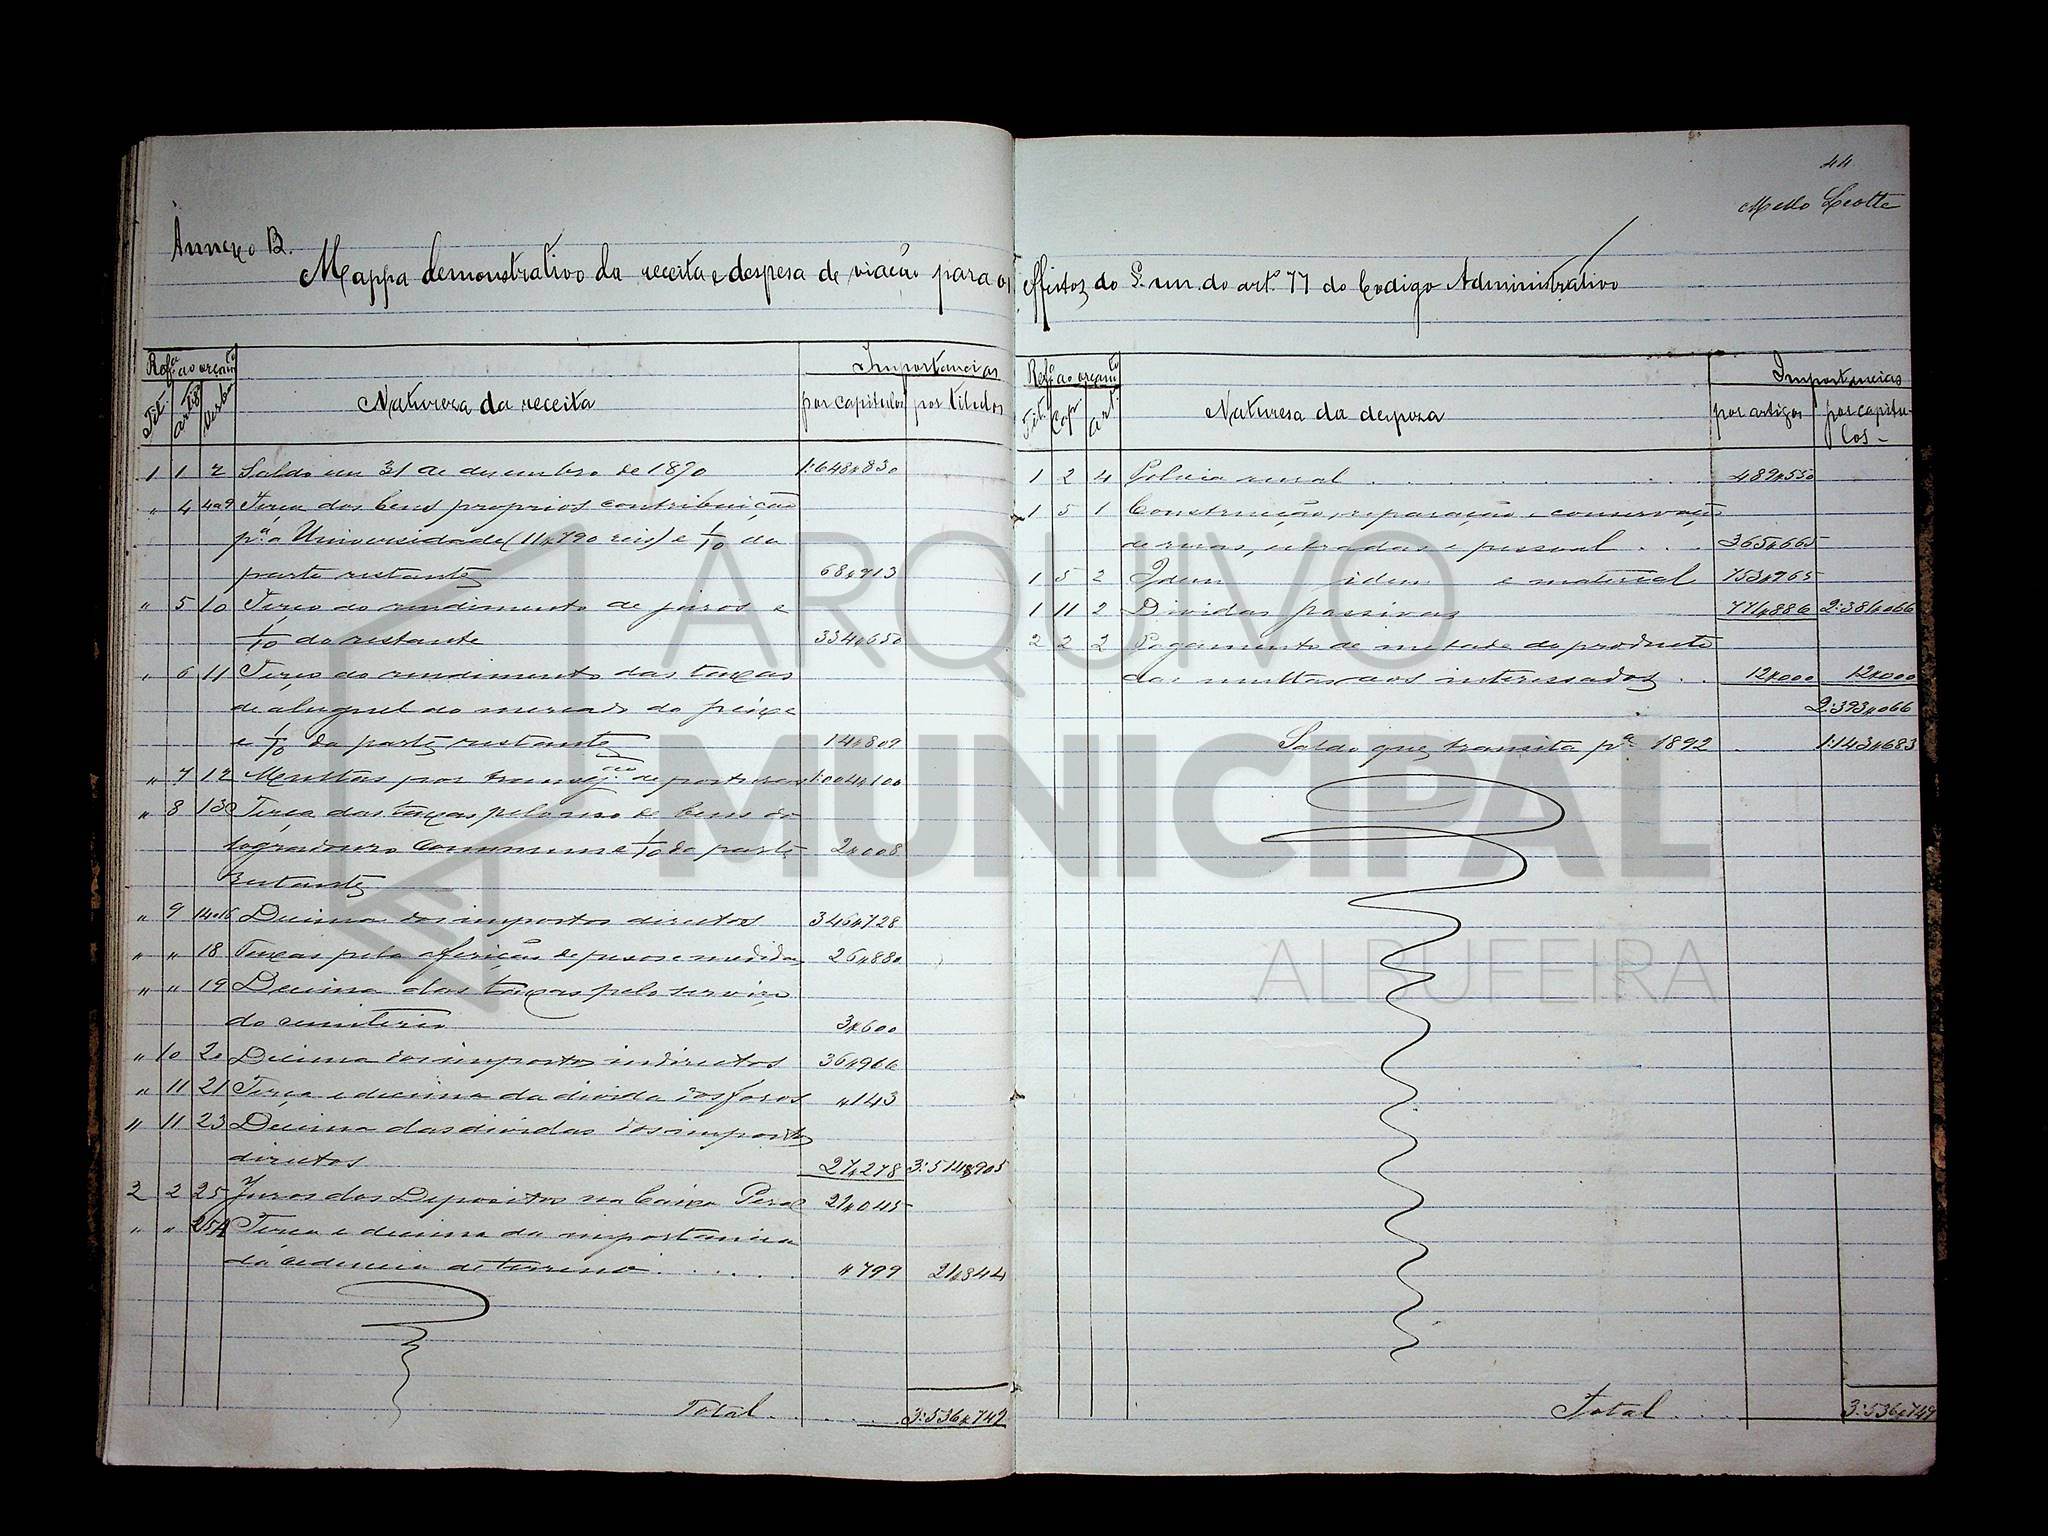 44
Mello Leotte
Annexo B.
Mappa demonstrativo da receita e despesa de viação para os effeitos do §. un. do art.º 77 do Codigo Administrativo
Ref.ª ao orçam.to
Importancias
Tit. artig. Verba
Natureza da receita
por capitulos por titulos
1 1 2 Saldo em 31 de dezembro de 1890 1:648$830
" 4 4a9 Terça dos bens proprios contribuição
p.ª a Universidade (11$790 reis) e 1/10 da
parte restante 68$913
" 5 10 Terço do rendimento de juros e
1/10 do restante 334$650
" 6 11 Terço do rendimento das taxas
de aluguel do mercado do peixe
e 1/10 da parte restante 14$809
" 7 12 Multas por transg.ão de posturas 1:004$100
" 8 13 Terça das taxas pelo uso de bens do
logradouro commum e 1/10 da parte 2$008
restante
" 9 14a16 Decima dos impostos directos 346$728
" " 18 Taxas pela afferição de pesos e medidas 26$880
" " 19 Decima das taxas pelo serviço
do cemiterio 3$600
" 10 20 Decima dos impostos indirectos 36$966
" 11 21 Terça e decima da divida dos foros $143
" 11 23 Decima das dividas dos impostos
directos 27$278 3:514$905
2 2 25 Juros dos Depositos na Caixa Geral 21$045
" " 25A Terça e decima da importancia
da cedencia de terreno . . . . . $799 21$844
Total . . . . 3:536$749
Ref.ª ao orçam.to
Importancias
Tit. Cap. Art.
Natureza da despeza
por artigos por capitu-
los-
1 2 4 Policia rural . . . . . . . 489$550
1 5 1 Construcção, reparação e conservação
de ruas, estradas e pessoal . . . 365$665
1 5 2 Idem idem e material 753$965
1 11 2 Dividas passivas 771$886 2:381$066
2 2 2 Pagamento de metade do producto
das multas aos interessados . . 12$000 12$000
2:393$066
Saldo que transita p.ª 1892 . 1:143$683
Total . . . 3:536$749
ARQUIVO
MUNICIPAL
ALBUFEIRA